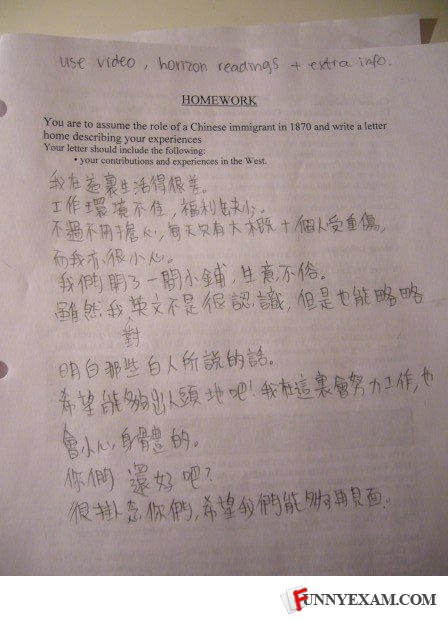 use video, horizon readings + extra info.
HOMEWORK
You are to assume the role of a Chinese immigrant in 1870 and write a letter
home describing your experiences
Your letter should include the following:
• your contributions and experiences in the West.
我在這裏生活得很差。
工作環境不佳,福利缺少。
不過不用擔心,每天只有大概十個人受重傷,
而我亦很小心。
我們開了一間小鋪,生意不俗。
雖然我對英文不是很認識,但是也能略略
明白那些白人所說的話。
希望能夠出人頭地吧!我在這裏會努力工作,也
會小心身體的。
你們還好吧?
很掛念你們,希望我們能夠再見面。
FUNNYEXAM.COM